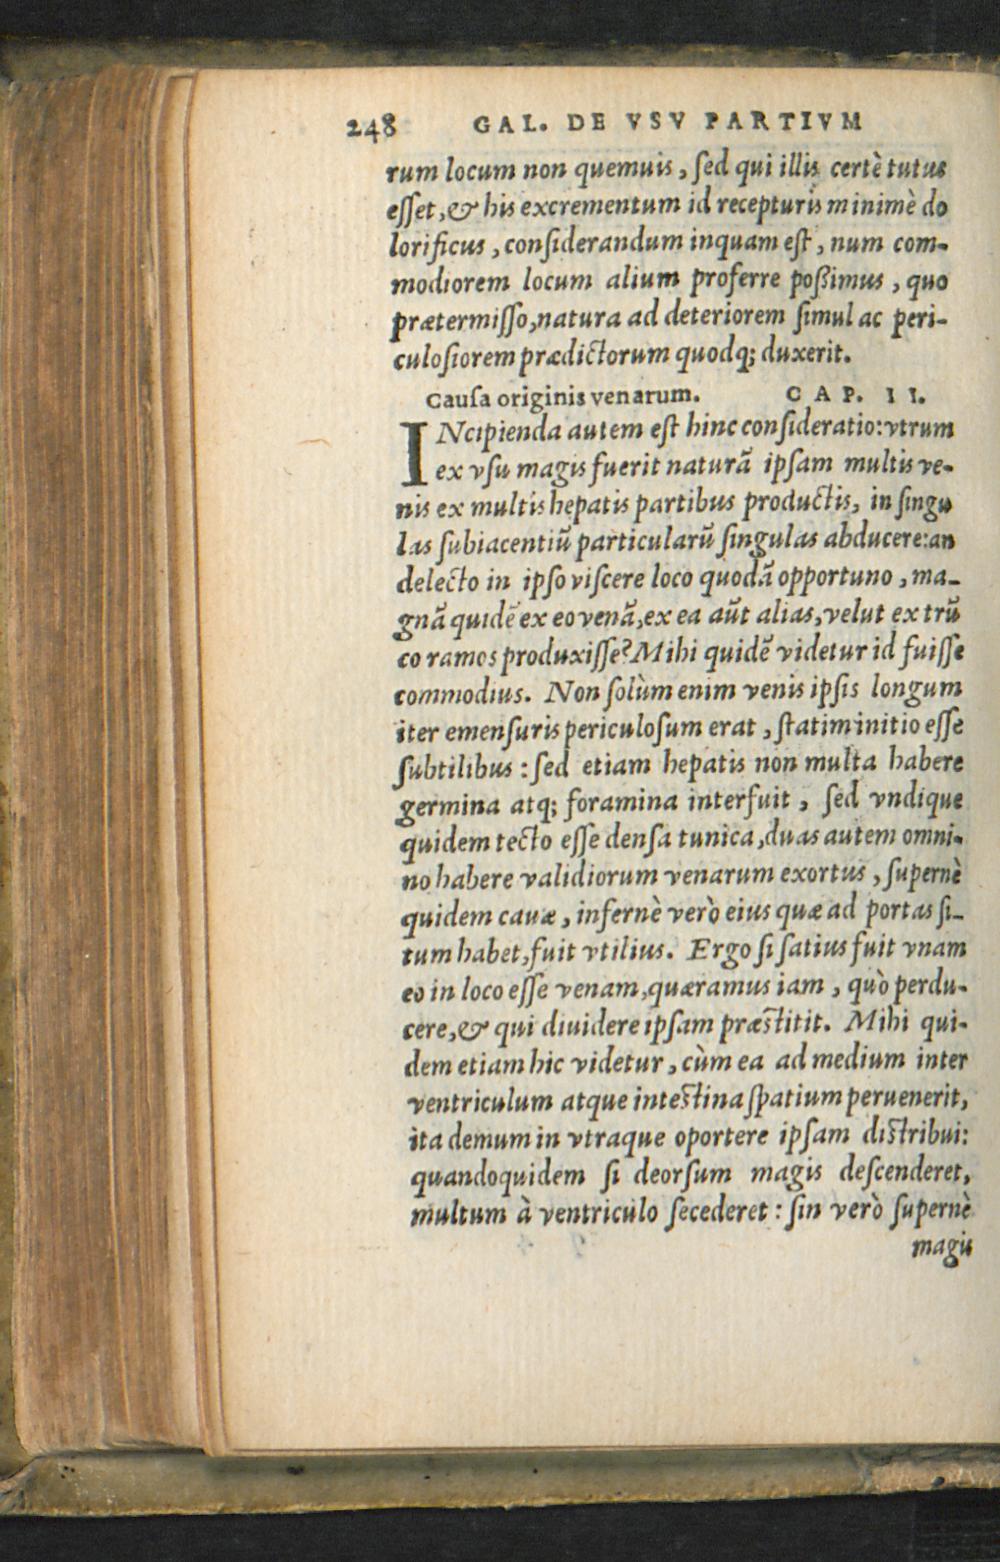 248 GAL. DE VSV PARTIVM
rum locum non quemuis, ſed qui illis certè tutus
eſſet, & his excrementum id recepturis minimè do
lorificus, conſiderandum inquam eſt, num com-
modiorem locum alium proferre poßimus, quo
prætermiſſo, natura ad deteriorem ſimul ac peri-
culoſiorem prædictorum quodq; duxerit.
Cauſa originis venarum. CAP. II.
INcipienda autem eſt hinc conſideratio: vtrum
ex vſu magis fuerit naturã ipſam multis ve-
nis ex multis hepatis partibus productis, in ſingu
las ſubiacentiũ particularũ ſingulas abducere: an
delecto in ipſo viſcere loco quodã opportuno, ma-
gnã quidẽ ex eo venã, ex ea aũt alias, velut ex trũ
co ramos produxiſſe? Mihi quidẽ videtur id fuiſſe
commodius. Non ſolùm enim venis ipſis longum
iter emenſuris periculoſum erat, ſtatim initio eſſe
ſubtilibus: ſed etiam hepatis non multa habere
germina atq; foramina interfuit, ſed vndique
quidem tecto eſſe denſa tunica, duas autem omni-
no habere validiorum venarum exortus, ſupernè
quidem cauæ, infernè verò eius quæ ad portas ſi-
tum habet, fuit vtilius. Ergo ſi ſatius fuit vnam
eo in loco eſſe venam, quæramus iam, quò perdu-
cere, & qui diuidere ipſam præſtitit. Mihi qui-
dem etiam hic videtur, cùm ea ad medium inter
ventriculum atque inteſtina ſpatium peruenerit,
ita demum in vtraque oportere ipſam diſtribui:
quandoquidem ſi deorſum magis deſcenderet,
multum à ventriculo ſecederet: ſin verò ſupernè
magis